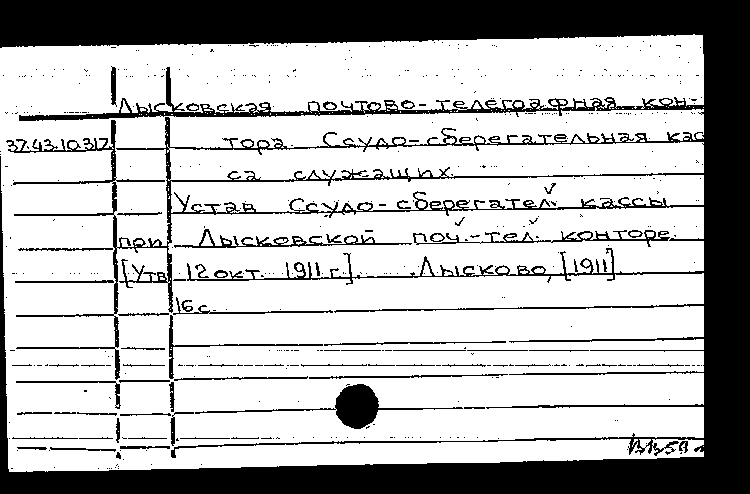 Лысковская почтово-телеграфная кон-
37.43.10.317 тора. Ссудо-сберегательная кас
са служащих.
Устав Ссудо-сберегател. кассы
при Лысковской поч.-тел. конторе.
[Утв. 12 окт. 1911 г.]. Лысково, [1911].
16 с.